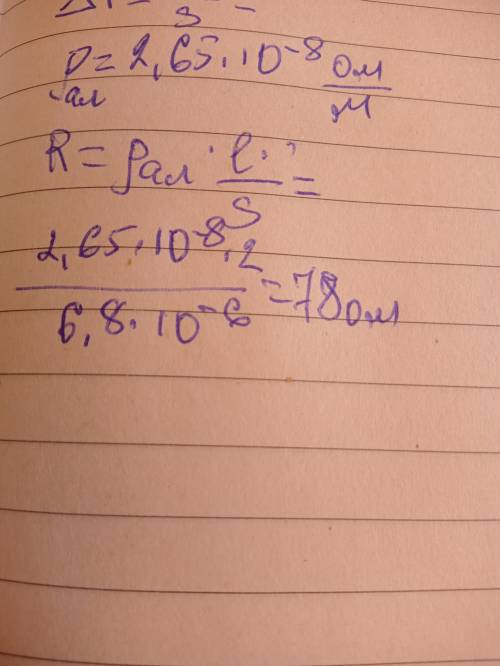 ρал = 2,65·10⁻⁸ Ом/м
R = ρал · l · / S =
2,65·10⁻⁸·2 / 6,8·10⁻⁶ = 78 Ом